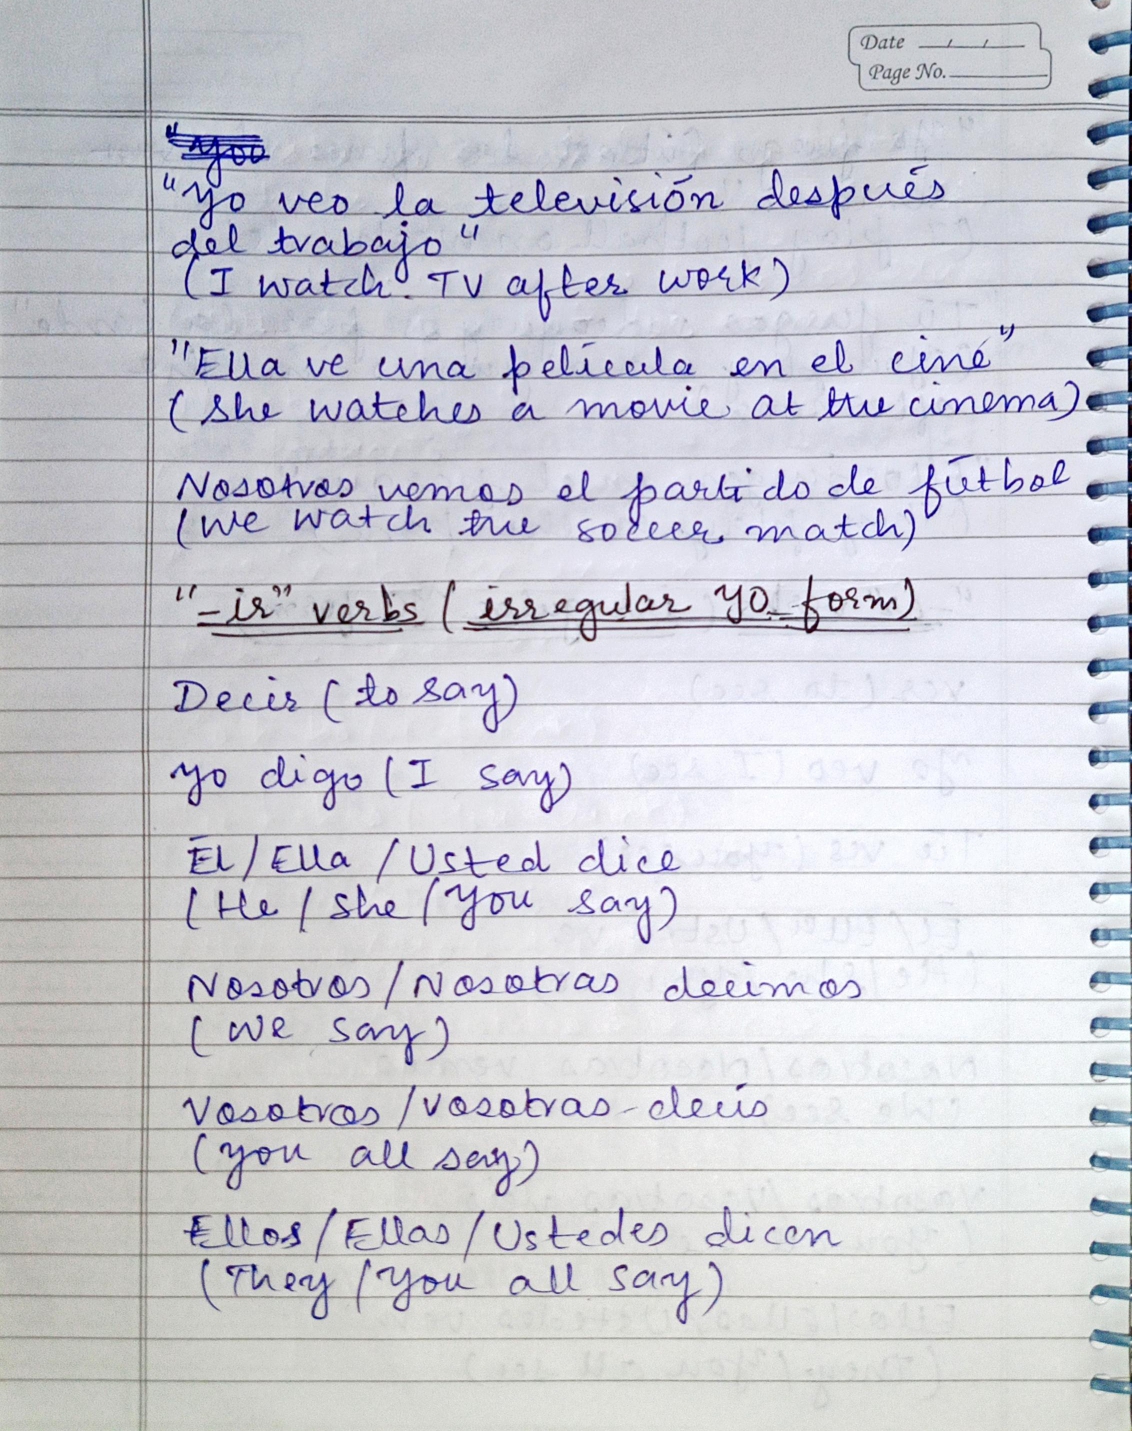 Date
Page No.
"Yoo
"Yo veo la televisión después
del trabajo"
(I watch TV after work)
"Ella ve una película en el cine"
(She watches a movie at the cinema)
Nosotros vemos el partido de fútbol
(We watch the soccer match)
"-ir" verbs (irregular yo form)
Decir (to say)
yo digo (I say)
Él/Ella/Usted dice
(He/She/You say)
Nosotros/Nosotras decimos
(We say)
Vosotros/vosotras-decís
(you all say)
Ellos/Ellas/Ustedes dicen
(They/you all say)